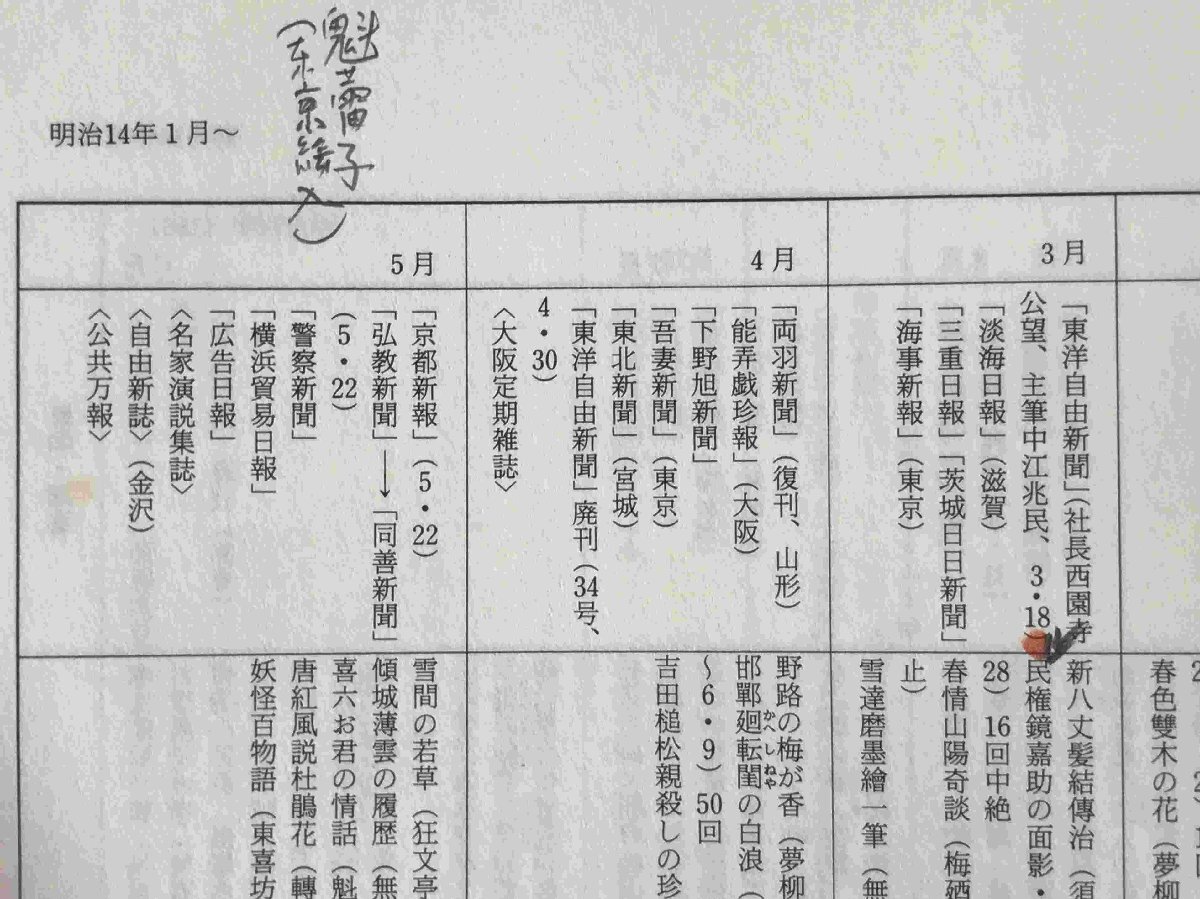 魁蕾子
(東京絵入)
明治14年1月~
3月
「東洋自由新聞」(社長西園寺
公望、主筆中江兆民、3・18)
「淡海日報」(滋賀)
「三重日報」「茨城日日新聞」
「海事新報」(東京)
4月
「両羽新聞」(復刊、山形)
「能弄戯珍報」(大阪)
「下野旭新聞」
「吾妻新聞」(東京)
「東北新聞」(宮城)
「東洋自由新聞」廃刊(34号、
4・30)
〈大阪定期雑誌〉
5月
「京都新報」(5・22)
「弘教新聞」→「同善新聞」
(5・22)
「警察新聞」
「横浜貿易日報」
「広告日報」
〈名家演説集誌〉
〈自由新誌〉(金沢)
〈公共万報〉
春色雙木の花(夢
新八丈髪結傳治(須
民権鏡嘉助の面影・
28)16回中絶
春情山陽奇談(梅廼
止)
雪達磨墨繪一筆(無
野路の梅が香(夢柳
邯鄲廻転閨の白浪(
かへしねや
~6・9)50回
吉田槌松親殺しの珍
雪間の若草(狂文亭
傾城薄雲の履歴(無
喜六お君の情話(魁
唐紅風説杜鵑花(轉
妖怪百物語(東喜坊